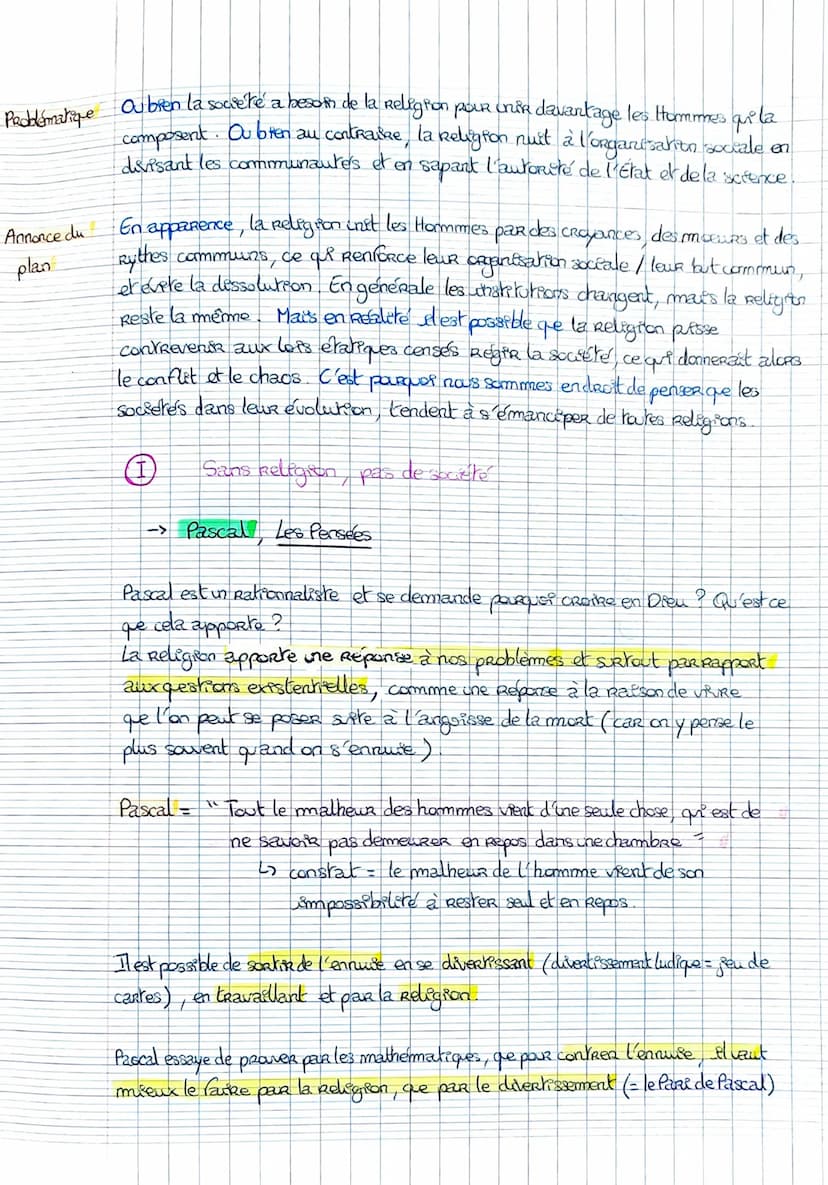 Problématique
Ou bien la société a besoin de la Religion pour unir davantage les Hommmes qui la
composent. Ou bien au contraire, la Religion nuit à l'organisation sociale en
divisant les communautés et en sapant l'autorité de l'État et de la science.
Annonce du
plan
En apparence, la religion unit les Hommes par des croyances, des mœurs et des
Rythes communs, ce qui Renforce leur organisation sociale / leur but commun,
et évite la dissolution. En générale les institutions changent, mais la religion
Reste la même. Mais en Réalité il est possible que la Religion puisse
contrevenir aux lois étatiques censés Régir la société, ce qui donnerait alors
le conflit et le chaos. C'est pourquoi nous sommes en droit de penser que les
sociétés dans leur évolution, tendent à s'émanciper de toutes Religions.
I Sans Religion, pas de société
-> Pascal, Les Pensées
Pascal est un Rationnaliste et se demande pourquoi croire en Dieu ? Qu'est ce
que cela apporte ?
La Religion apporte une Réponse à nos problèmes et surtout par rapport
aux questions existentielles, comme une Réponse à la Raison de vivre
que l'on peut se poser suite à l'angoisse de la mort (car on y pense le
plus souvent quand on s'ennuie).
Pascal = " Tout le malheur des hommes vient d'une seule chose, qui est de
ne savoir pas demeurer en repos dans une chambre "
↳ constat = le malheur de l'homme vient de son
impossibilité à Rester seul et en Repos.
Il est possible de sortir de l'ennuie en se divertissant (divertissement ludique = jeu de
cartes), en travaillant et par la Religion.
Pascal essaye de prouver par les mathématiques, que pour contrer l'ennuie, il vaut
mieux le faire par la Religion, que par le divertissement (= le Pari de Pascal)